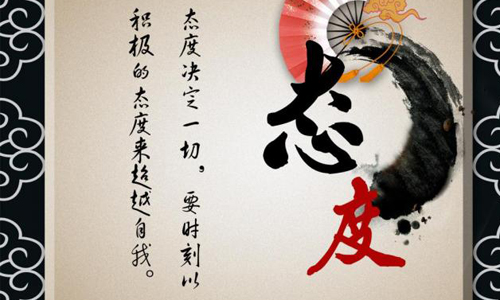 态度
态度决定一切。要时刻以
积极的态度来超越自我。